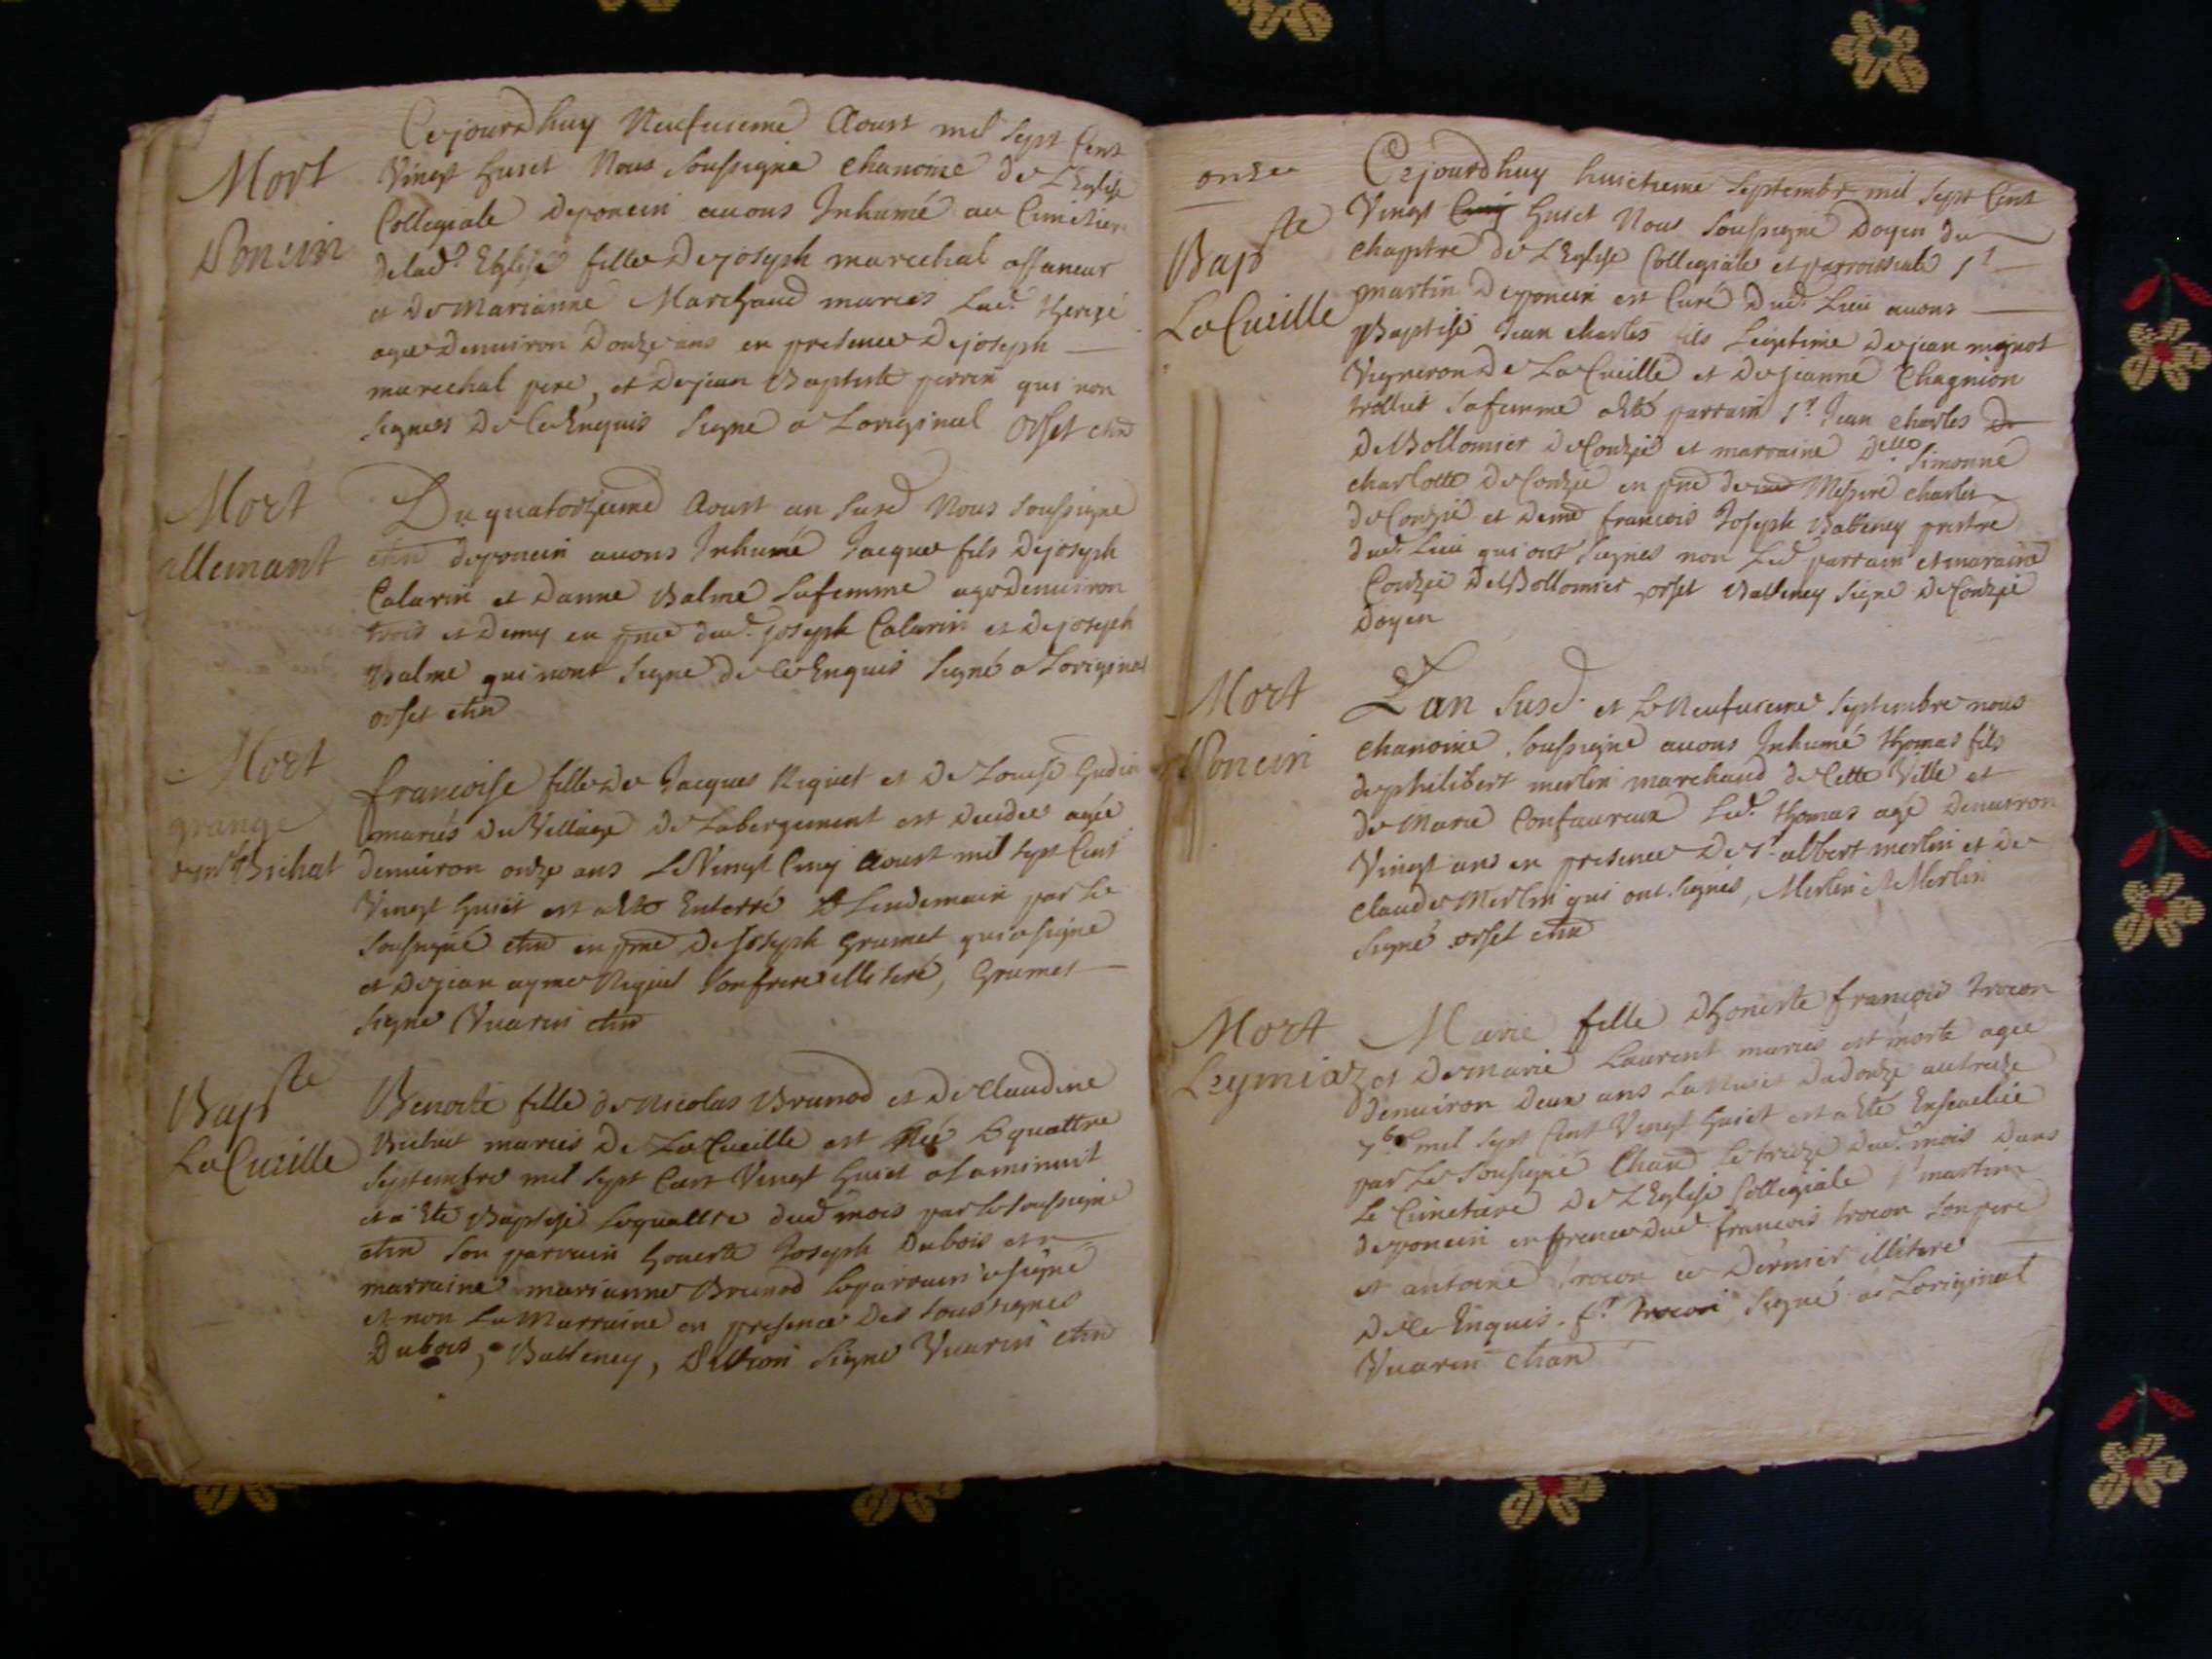 Mort
Poncin
Cejourdhuy Neufvieme Aoust mil sept Cent
Vingt huict Nous soussigne chanoine de L'Eglise
Collegiale deponcin avons Inhumé au Cimetiere
delad.e Eglise fille Dejoseph marechal affaneur
et de Marianne Marchand mariés Lad.e
agée Denviron Douze ans en presence Dejoseph
marechal pere, et dejean Baptiste perrin qui non
signes De Ce Enquis Signe a Loriginal Orset chn
Mort
allemant
Du quatorzieme Aoust an susd Nous soussigne
chn deponcin avons Inhumé Jacque fils Dejoseph
Calarin et Danne Balme sa femme agé denviron
trois et Demy en pnce dud. joseph Calarin et Dejoseph
Balme qui nont signe de Ce Enquis signé a Loriginal
orset chn
Mort
grange
Bichat
francoise fille de Jacques Riquet et De Louise Gudin
mariés Du Village De Labergement est decidee agée
denviron onze ans Le Vingt Cinq Aoust mil sept Cent
Vingt huict et a Ete Enterré Le Lendemain par le
soussigné chn en pnce De Joseph Grumet qui a signe
et Dejean ayme Riquet son frere illiteré, Grumet
signe Vuarin chn
Bap.ste
La Cueille
Benoite fille de Nicolas Brunod et De Claudine
Bichat mariés De La Cueille est Née Le quattre
septembre mil sept Cent Vingt huict a La minuit
et a Ete Baptisé Le quattre dud mois par le soussigné
chn son parrain honeste Joseph Dubois et
marraine marianne Brunod Le parrain a signé
et non La Marraine en presence Des soussignes
Dubois, Batteney, signe Vuarin chn
onze
Bap.ste
La Cueille
Cejourdhuy huictieme septembre mil sept Cent
Vingt Cinq huict Nous soussigné Doyen du
chapitre de L'Eglise Collegiale et parroissiale st
martin Deponcin et Curé Dud. Lieu avons
Baptisé Jean charles fils Legitime dejean mignot
Vigneron De La Cueille et Dejeanne Chagnion
trollict sa femme a Eté parrain sr. Jean charles De
De Bollomier De Conzié et marraine Delle Simonne
charlotte De Conzié en pnce de md Messire charles
de Conzié et demd francois Joseph Batteney prestre
dud. Lieu qui ont signes non Led parrain et maraine
Conzié De Bollomier, orset Batteney signe De Conzié
Doyen
Mort
Poncin
L'an Susd. et Le Neufvieme septembre nous
chanoine soussigné avons Inhumé thomas fils
dephilibert merlin marchand de Cette Ville et
de Marie Confavreux Led. thomas agé Denviron
Vingt ans en presence De sr. albert merlin et de
claude Merlin qui ont signés, Merlin Merlin
signé orset chn
Mort
Leymiaz
Marie fille Dhoneste françois trocon
et De marie Laurent maries est morte agee
Denviron Deux ans La Nuict Du douze au treize
7bre mil sept Cent Vingt huict et a Ete Ensevelie
par Le soussigné Chand Le treize dud. mois Dans
Le Cimetiere De L'Eglise Collegiale st martin
deponcin en presence dud francois trocon son pere
et antoine trocon ce Dernier illiteré
De Ce Enquis. f.s trocon Signé a Loriginal
Vuarin chan